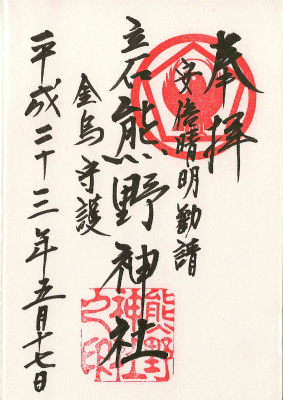 奉拝
安倍晴明勧請
立石熊野神社
金烏守護
平成二十三年五月十七日
熊野
神社
之印